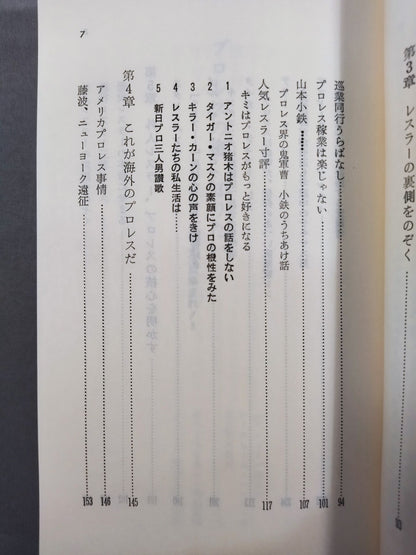 第3章 レスラーの裏側をのぞく
巡業同行うらばなし……94
プロレス稼業は楽じゃない……101
山本小鉄……107
プロレス界の鬼軍曹 小鉄のうちあけ話
人気レスラー寸評……117
キミはプロレスがもっと好きになる
1 アントニオ猪木はプロレスの話をしない
2 タイガー・マスクの素顔にプロの根性をみた
3 キラー・カーンの心の声をきけ
4 レスラーたちの私生活は……
5 新日プロ三人男讃歌
第4章 これが海外のプロレスだ……145
アメリカプロレス事情……146
藤波、ニューヨーク遠征……153
7